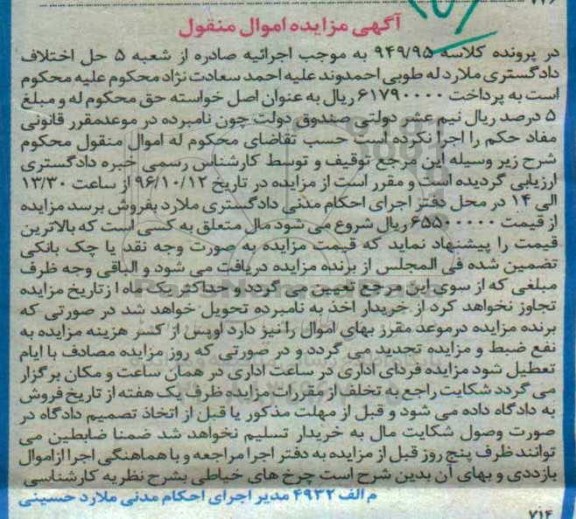 آگهی مزایده اموال منقول
در پرونده کلاسه ۹۴۹/۹۵ به موجب اجرائیه صادره از شعبه ۵ حل اختلاف
دادگستری ملارد له طوبی احمدوند علیه احمد سعادت نژاد محکوم علیه محکوم
است به پرداخت ۶۱۷۹۰۰۰۰ ریال به عنوان اصل خواسته حق محکوم له و مبلغ
۵ درصد ریال نیم عشر دولتی صندوق دولت چون نامبرده در موعدمقرر قانونی
مفاد حکم را اجرا نکرده است حسب تقاضای محکوم له اموال منقول محکوم
شرح زیر وسیله این مرجع توقیف و توسط کارشناس رسمی خبره دادگستری
ارزیابی گردیده است و مقرر است از مزایده در تاریخ ۹۶/۱۰/۱۲ از ساعت ۱۳/۳۰
الی ۱۴ در محل دفتر اجرای احکام مدنی دادگستری ملارد بفروش برسد مزایده
از قیمت ۶۵۵۰۰۰۰۰ ریال شروع می شود مال متعلق به کسی است که بالاترین
قیمت را پیشنهاد نماید که قیمت مزایده به صورت وجه نقد یا چک بانکی
تضمین شده فی المجلس از برنده مزایده دریافت می شود و الباقی وجه ظرف
مبلغی که از سوی این مرجع تعیین می گردد و حداکثر یک ماه از تاریخ مزایده
تجاوز نخواهد کرد از خریدار اخذ به نامبرده تحویل خواهد شد در صورتی که
برنده مزایده درموعد مقرر بهای اموال را نیز دارد اوپس از کسر هزینه مزایده به
نفع ضبط و مزایده تجدید می گردد و در صورتی که روز مزایده مصادف با ایام
تعطیل شود مزایده فردای اداری در ساعت اداری در همان ساعت و مکان برگزار
می گردد شکایت راجع به تخلف از مقررات مزایده ظرف یک هفته از تاریخ فروش
به دادگاه داده می شود و قبل از مهلت مذکور یا قبل از اتخاذ تصمیم دادگاه در
صورت وصول شکایت مال به خریدار تسلیم نخواهد شد ضمنا ضابطین می
توانند ظرف پنج روز قبل از مزایده به دفتر اجرا مراجعه و با هماهنگی اجرا ازاموال
بازددی و بهای آن بدین شرح است چرخ های خیاطی بشرح نظریه کارشناسی
م الف ۴۹۳۲ مدیر اجرای احکام مدنی ملارد حسینی
۷۱۴